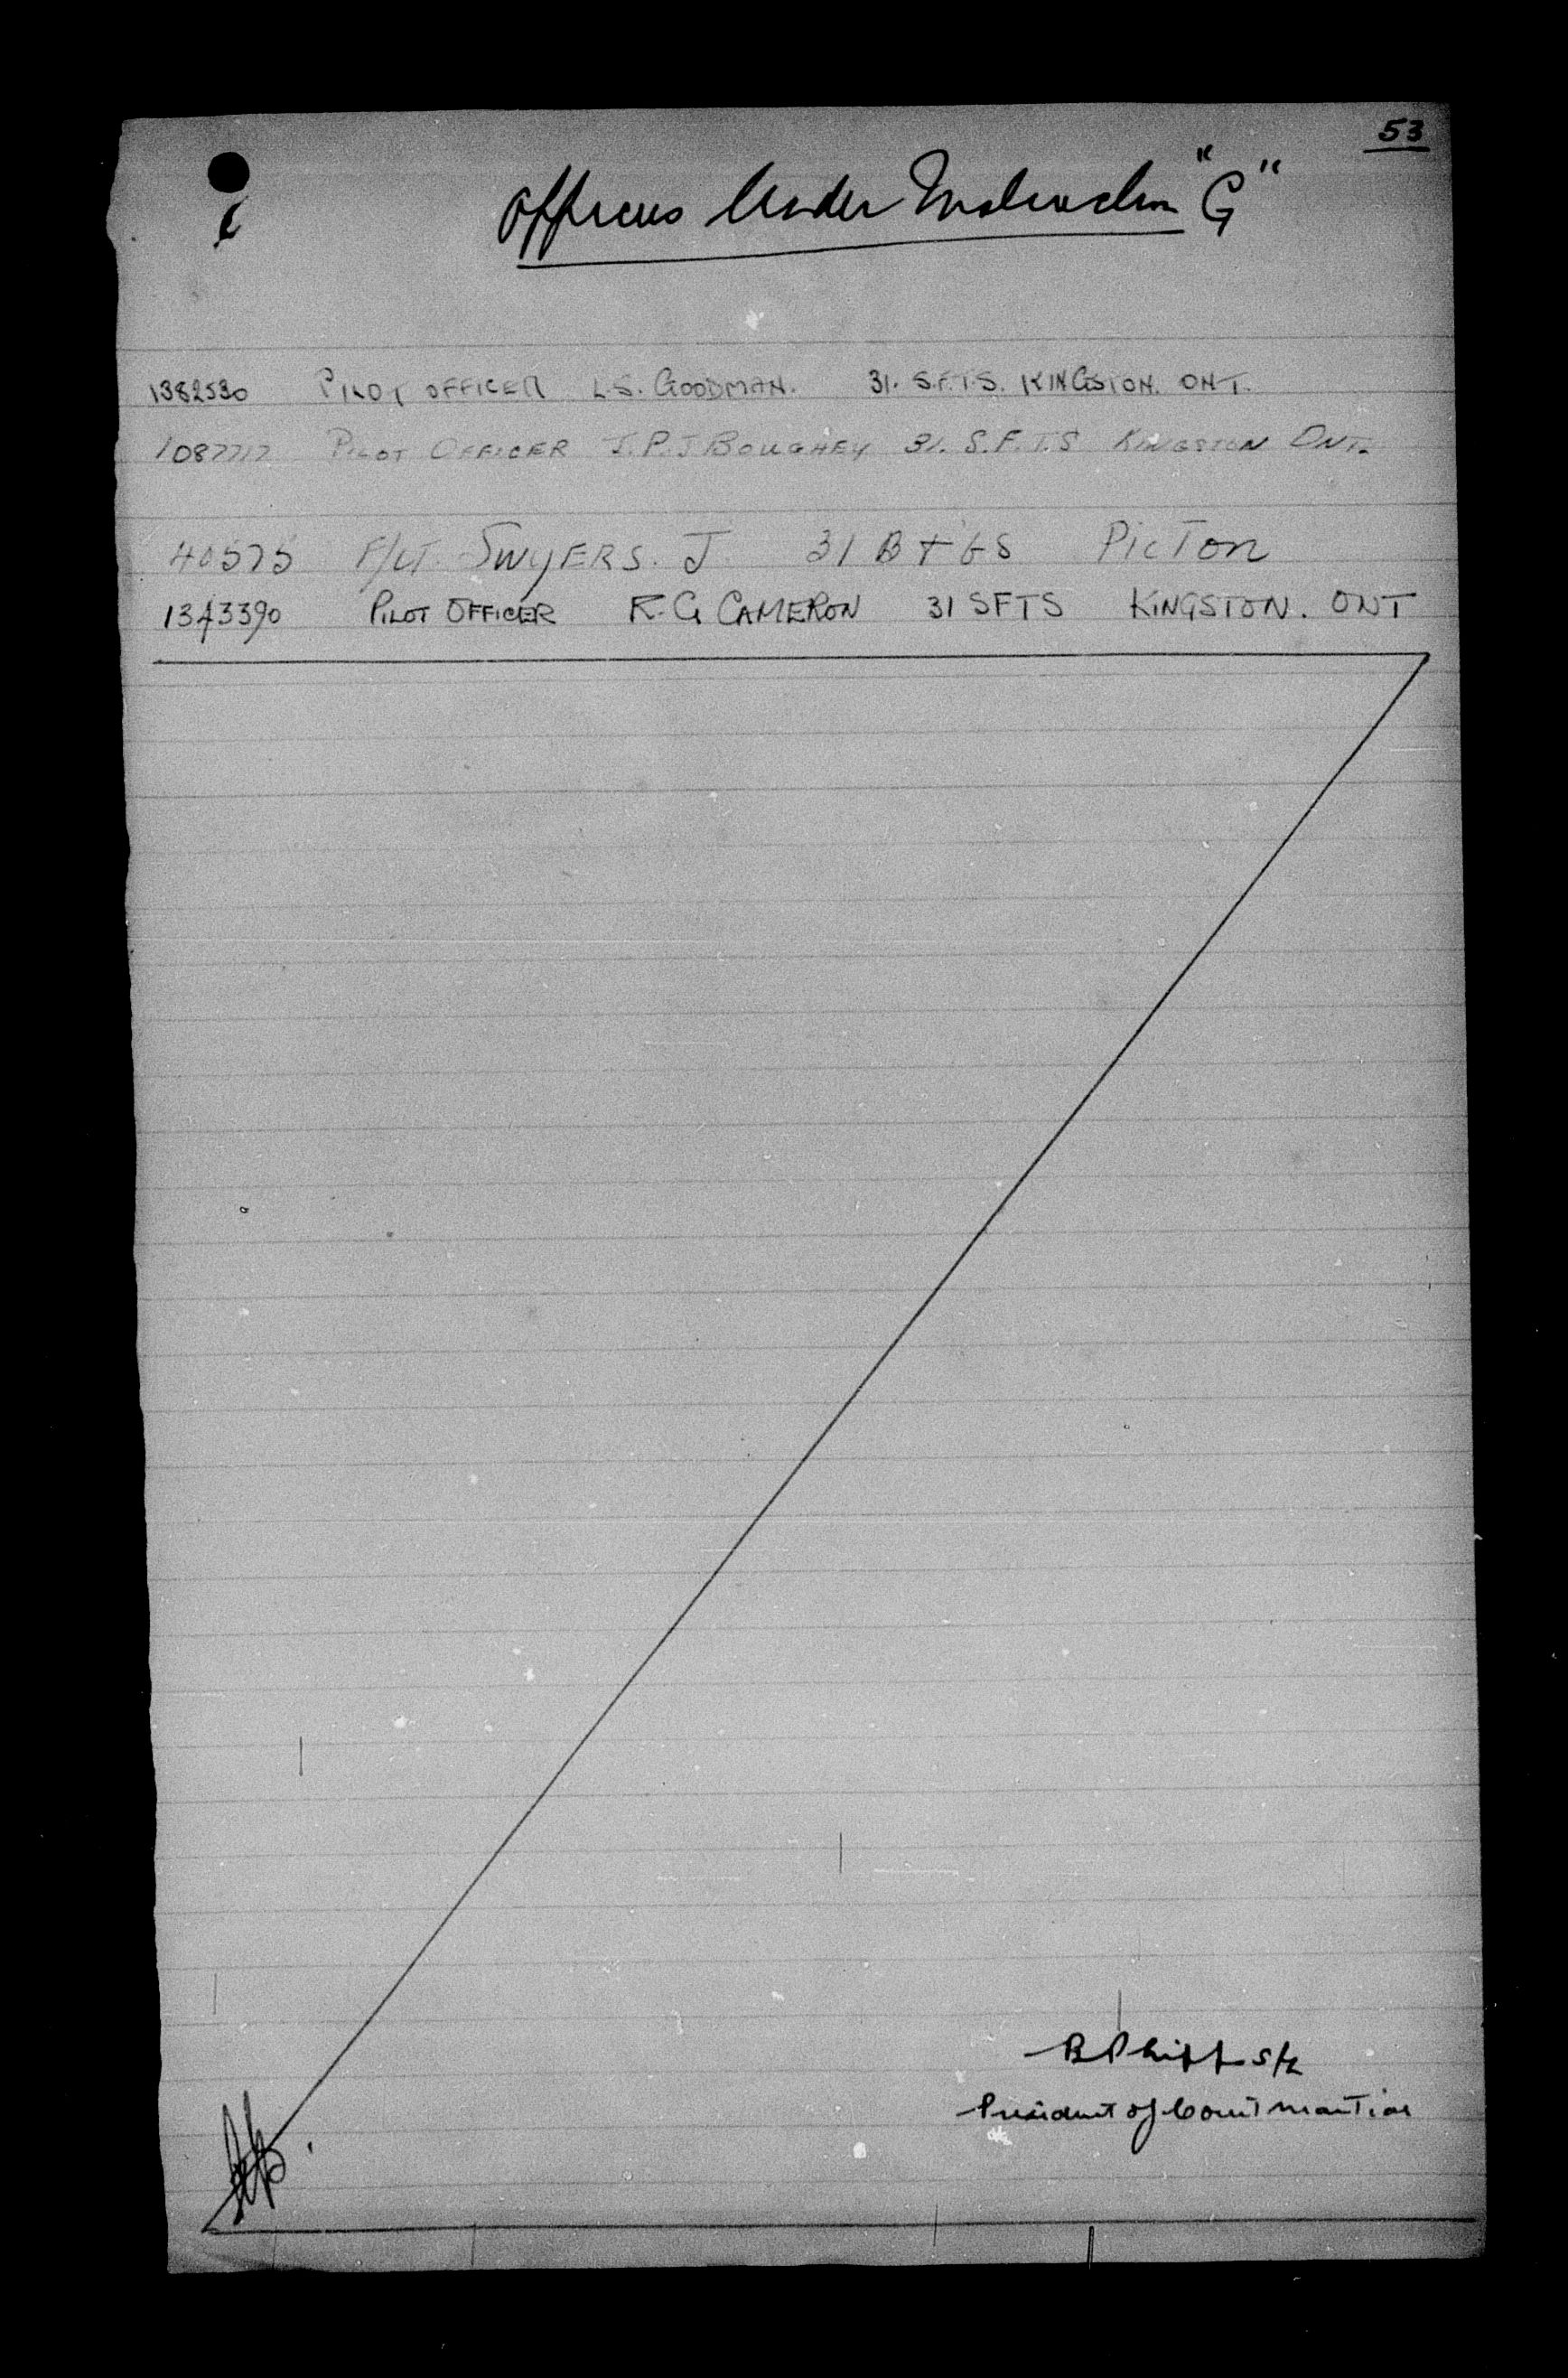 53
Officers Under Instruction "G"
1382530 PILOT OFFICER L.S. GOODMAN. 31. S.F.T.S. KINGSTON. ONT.
1087717 PILOT OFFICER J.P.J BOUGHEY 31. S.F.T.S KINGSTON ONT.
40575 F/LT. SWYERS. J 31 B + GS PICTON
1343390 PILOT OFFICER R.G CAMERON 31 SFTS KINGSTON. ONT
S/L
President of Court Martial